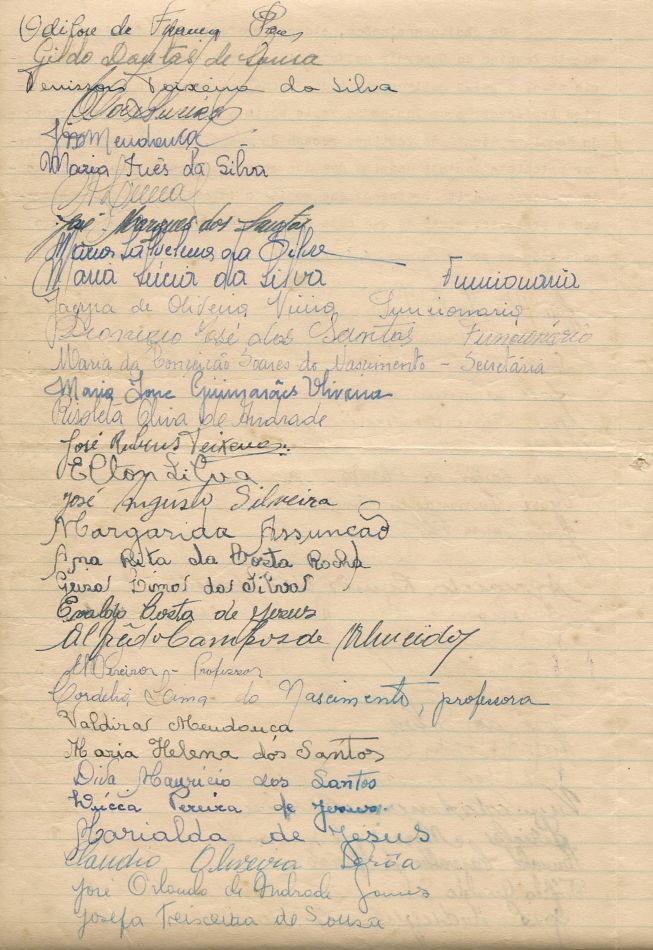 de França
Gildo Dantas de Sousa
Teixeira da Silva
José Mendonça
Maria Inês da Silva
José Marques dos Santos
da Silva
Maria Lúcia da Silva Funcionaria
de Oliveira Funcionario
Dionizio José dos Santos Funcionário
Maria da Conceição Soares do Nascimento - Secretária
Maria Guimarães Oliveira
de Andrade
José Rubens Teixeira
Elton Silva
José Augusto Silveira
Margarida Assunção
Ana Rita da Costa Rocha
da Silva
Costa de Jesus
Alfrêdo Campos de Almeida
- Professor
Cordelia Lima do Nascimento, professora
Valdira Mendonça
Maria Helena dos Santos
Diva Mauricio dos Santos
Pereira de Jesus
Marialda de Jesus
Claudio Oliveira
José Orlando de Andrade Gomes
Josefa Teixeira de Sousa